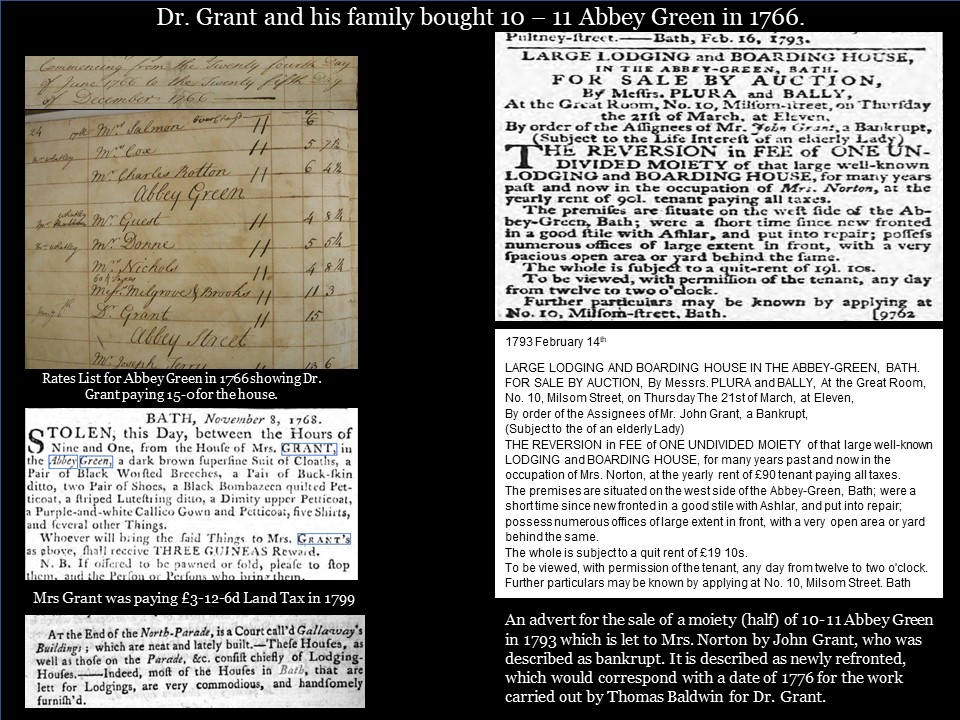 Dr. Grant and his family bought 10 – 11 Abbey Green in 1766.
Commencing from the Twenty fourth Day
of June 1766 to the Twenty fifth Day
of December 1766
24 Mrs. Salmon 11 6
Mrs. Cox 11 5 7½
Mr. Charles Rotton 11 6 4½
Abbey Green
Mr. Guest 11 4 8¼
Mr. Donne 11 5 5¼
Mrs. Nichols 11 4 8¼
Miss. Melgrove & Brooks 11 11 3
Dr. Grant 11 15
Abbey Street
Mr. Joseph Terry
Rates List for Abbey Green in 1766 showing Dr.
Grant paying 15-0 for the house.
BATH, November 8, 1768.
STOLEN, this Day, between the Hours of
Nine and One, from the House of Mrs. GRANT, in
the Abbey Green, a dark brown superfine Suit of Cloaths, a
Pair of Black Worsted Breeches, a Pair of Buck-skin
ditto, two Pair of Shoes, a Black Bombazeen quilted Pet-
ticoat, a striped Lutestring ditto, a Dimity upper Petticoat,
a Purple-and-white Callico Gown and Petticoat, five Shirts,
and several other Things.
Whoever will bring the said Things to Mrs. GRANT's
as above, shall receive THREE GUINEAS Reward.
N. B. If offered to be pawned or sold, please to stop
them, and the Person or Persons who bring them.
Mrs Grant was paying £3-12-6d Land Tax in 1799
AT the End of the North-Parade, is a Court call'd Gallaway's
Buildings; which are neat and lately built.—These Houses, as
well as those on the Parade, &c. consist chiefly of Lodging-
Houses.—Indeed, most of the Houses in Bath, that are
lett for Lodgings, are very commodious, and handsomely
furnish'd.
Pultney-street.—Bath, Feb. 16, 1793.
LARGE LODGING and BOARDING HOUSE,
IN THE ABBEY-GREEN, BATH.
FOR SALE BY AUCTION,
By Messrs. PLURA and BALLY,
At the Great Room, No. 10, Milsom-street, on Thursday
the 21st of March, at Eleven.
By order of the Assignees of Mr. John Grant, a Bankrupt,
(Subject to the Life Interest of an elderly Lady)
THE REVERSION in FEE of ONE UN-
DIVIDED MOIETY of that large well-known
LODGING and BOARDING HOUSE, for many years
past and now in the occupation of Mrs. Norton, at the
yearly rent of 90l. tenant paying all taxes.
The premises are situate on the west side of the Ab-
bey-Green, Bath; were a short time since new fronted
in a good stile with Ashlar, and put into repair; possess
numerous offices of large extent in front, with a very
spacious open area or yard behind the same.
The whole is subject to a quit-rent of 19l. 10s.
To be viewed, with permission of the tenant, any day
from twelve to two o'clock.
Further particulars may be known by applying at
No. 10, Milsom-street, Bath. [9762
1793 February 14th
LARGE LODGING AND BOARDING HOUSE IN THE ABBEY-GREEN, BATH.
FOR SALE BY AUCTION, By Messrs. PLURA and BALLY, At the Great Room,
No. 10, Milsom Street, on Thursday The 21st of March, at Eleven,
By order of the Assignees of Mr. John Grant, a Bankrupt,
(Subject to the of an elderly Lady)
THE REVERSION in FEE of ONE UNDIVIDED MOIETY of that large well-known
LODGING and BOARDING HOUSE, for many years past and now in the
occupation of Mrs. Norton, at the yearly rent of £90 tenant paying all taxes.
The premises are situated on the west side of the Abbey-Green, Bath; were a
short time since new fronted in a good stile with Ashlar, and put into repair;
possess numerous offices of large extent in front, with a very open area or yard
behind the same.
The whole is subject to a quit rent of £19 10s.
To be viewed, with permission of the tenant, any day from twelve to two o'clock.
Further particulars may be known by applying at No. 10, Milsom Street. Bath
An advert for the sale of a moiety (half) of 10-11 Abbey Green
in 1793 which is let to Mrs. Norton by John Grant, who was
described as bankrupt. It is described as newly refronted,
which would correspond with a date of 1776 for the work
carried out by Thomas Baldwin for Dr. Grant.